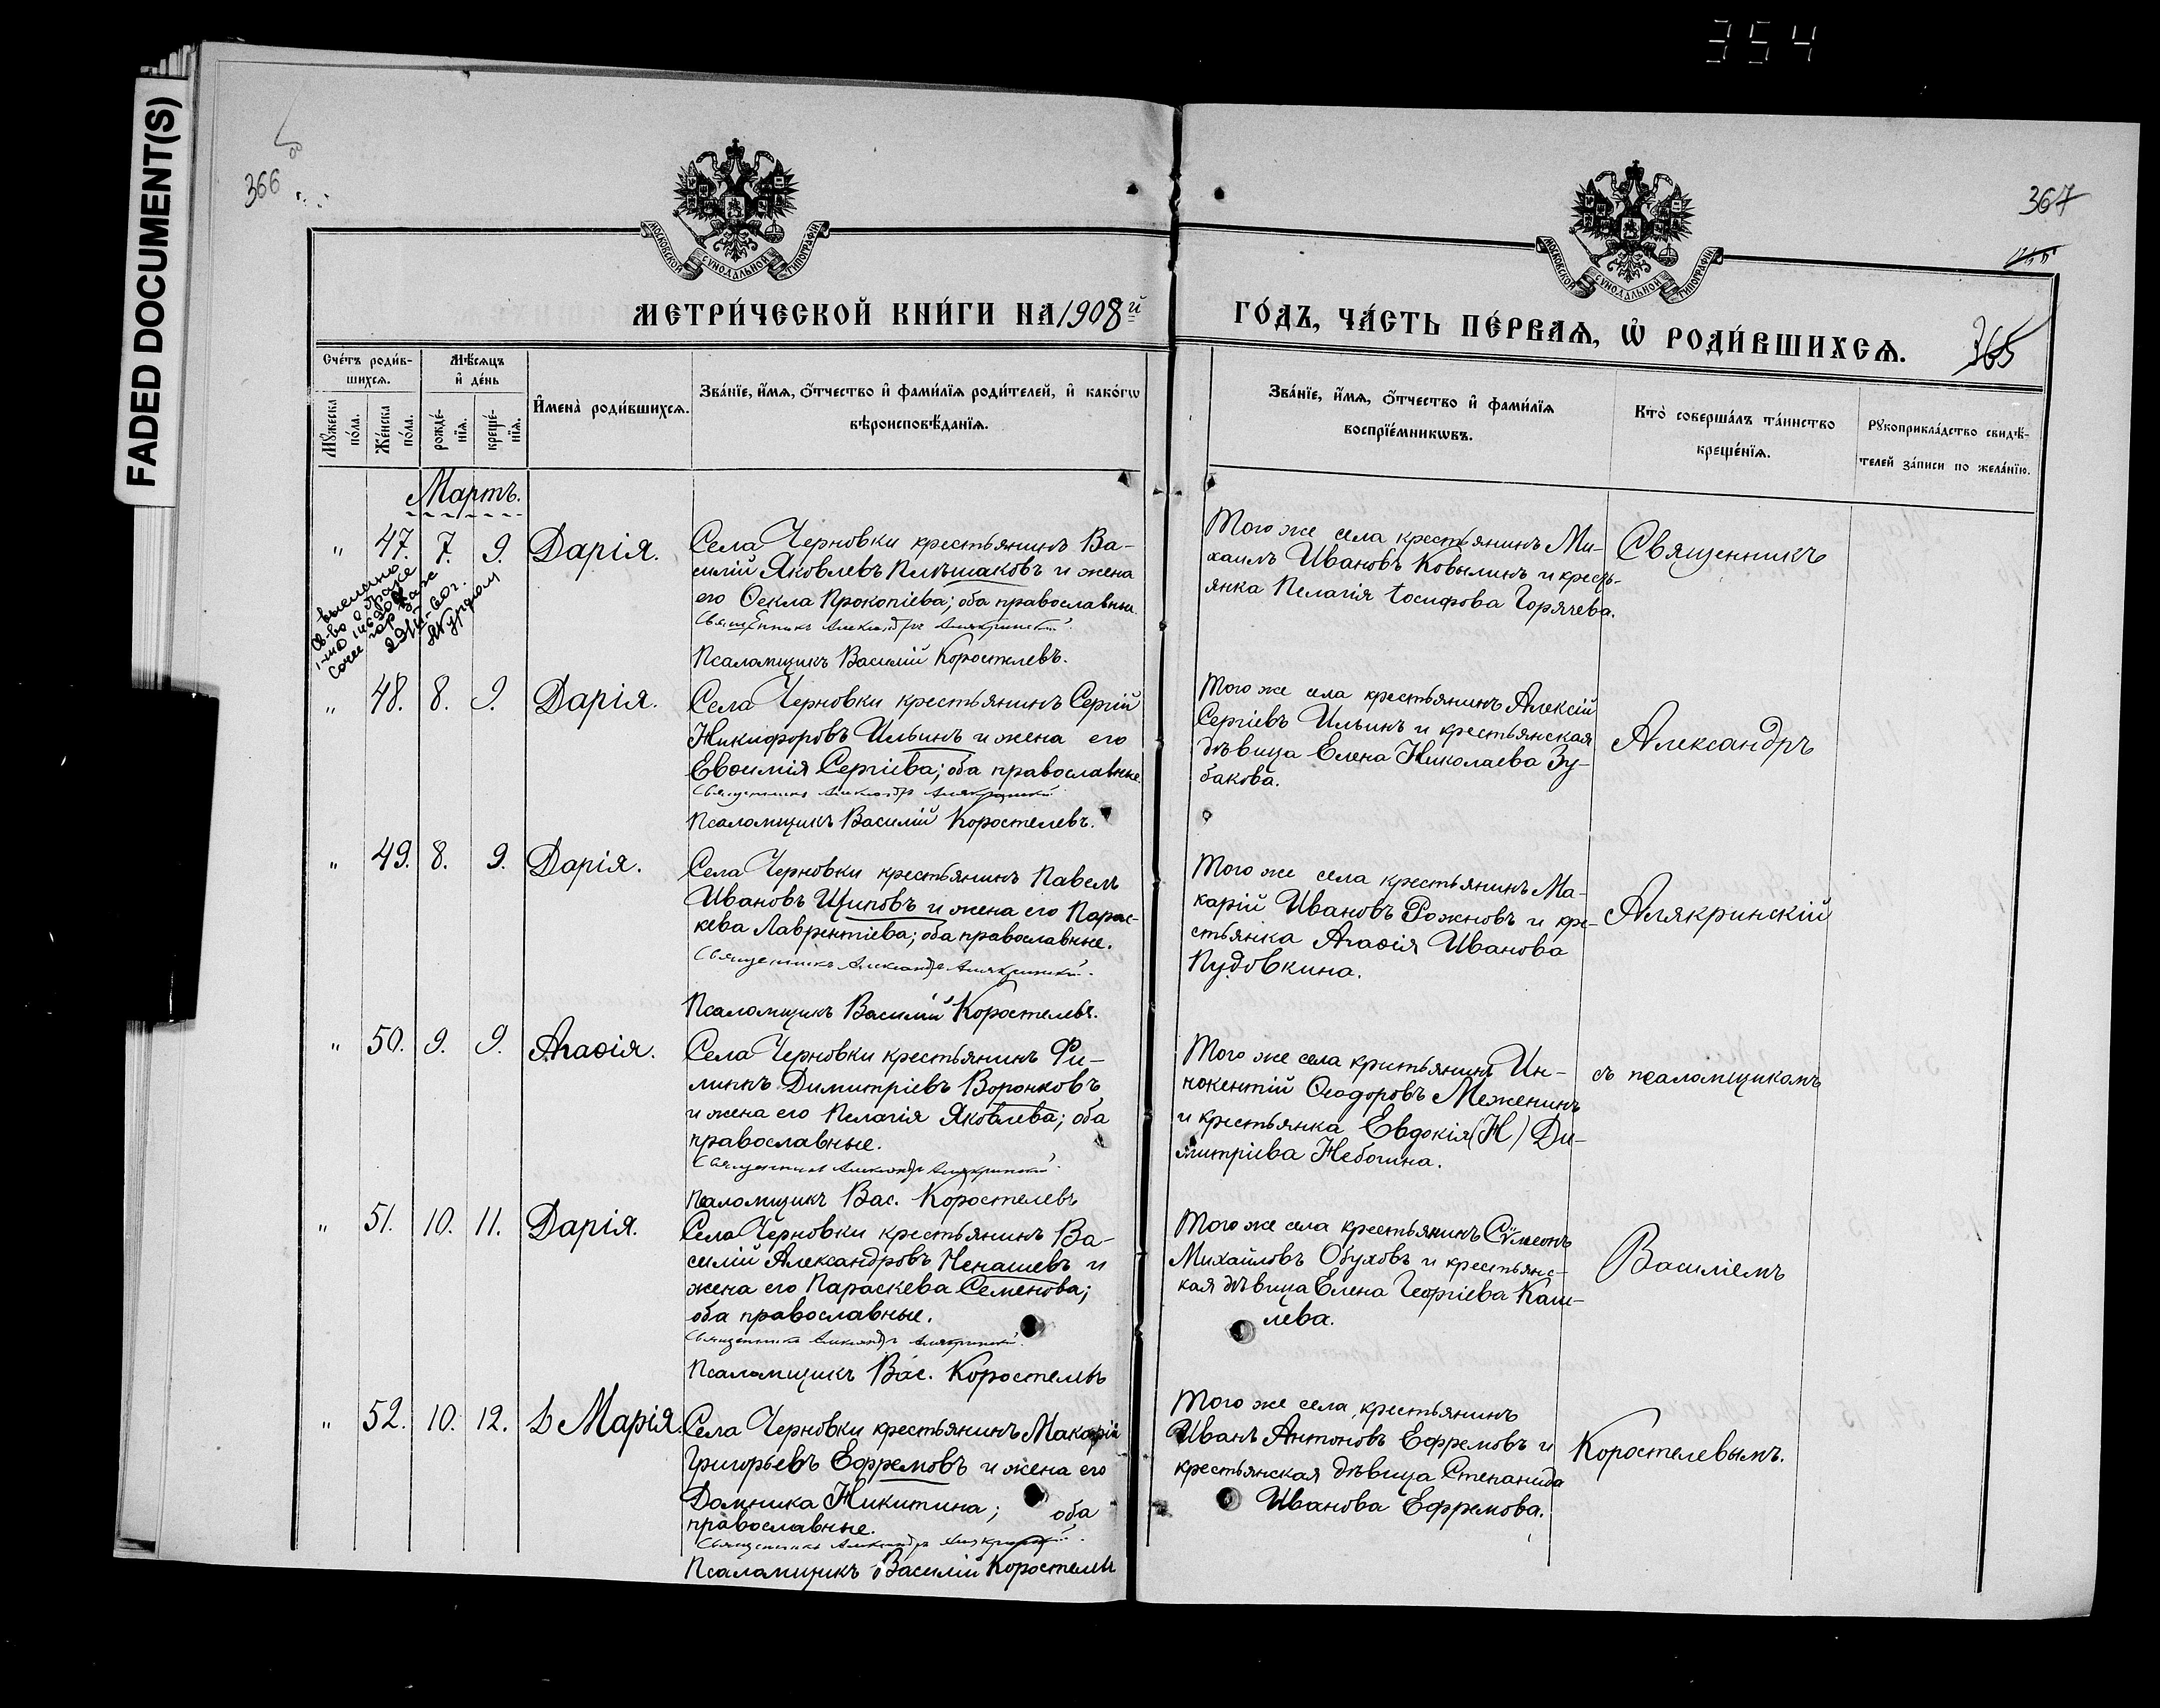 354
FADED DOCUMENT(S)
366
367
365
МОСКОВСКОЙ СѴНОДАЛЬНОЙ ТИПОГРАФІИ
МОСКОВСКОЙ СѴНОДАЛЬНОЙ ТИПОГРАФІИ
МЕТРИ́ЧЕСКОЙ КНИ́ГИ НА 1908й
ГО́ДЪ, ЧА́СТЬ ПЕ́РВАѦ, Ѡ҆ РОДИ́ВШИХСѦ.
Сче́тъ роди́в-
шихсѧ.
Мѣ́сѧцъ
и҆ де́нь
Мꙋ́жеска
по́ла.
Же́нска
по́ла.
рожде́-
нїѧ.
креще́-
нїѧ.
И҆мена̀ роди́вшихсѧ.
Зва́нїе, и҆́мѧ, ѻ҆́тчество и҆ фами́лїѧ роди́телей, и҆ како́гѡ
вѣроисповѣ́данїѧ.
Зва́нїе, и҆́мѧ, ѻ҆́тчество и҆ фами́лїѧ
воспрїе́мникѡвъ.
Кто̀ соверша́лъ та́инство
креще́нїѧ.
Рꙋкоприкла́дство свидѣ́-
телей за́писи по жела́нїю.
Мартъ.
" 47. 7. 9. Дарія.
Села Черновки крестьянинъ Ва-
силій Яковлевъ Плѣшаковъ и жена
его Ѳекла Прокопіева; оба православные.
Священникъ Александръ Алякринскій.
Псаломщикъ Василій Коростелевъ.
Того же села крестьянинъ Ми-
хаилъ Ивановъ Ковылинъ и кресть-
янка Пелагія Іосифова Горячева.
Священникъ
выслано
св-во о браке
" 48. 8. 9. Дарія.
Села Черновки крестьянинъ Сергій
Никифоровъ Ильинъ и жена его
Евѳимія Сергіева; оба православные
Священникъ Александръ Алякринскій
Псаломщикъ Василій Коростелевъ.
Того же села крестьянинъ Алексій
Сергіевъ Ильинъ и крестьянская
дѣвица Елена Николаева Зу-
бакова.
Александръ
" 49. 8. 9. Дарія.
Села Черновки крестьянинъ Павелъ
Ивановъ Щиповъ и жена его Парас-
кева Лаврентіева; оба православные.
Священникъ Александръ Алякринскій.
Псаломщикъ Василій Коростелевъ.
Того же села крестьянинъ Ма-
карій Ивановъ Рожновъ и кре-
стьянка Агаѳія Иванова
Пудовкина.
Алякринскій
" 50. 9. 9. Агаѳія.
Села Черновки крестьянинъ Фи-
липпъ Димитріевъ Воронковъ
и жена его Пелагія Яковлева; оба
православные.
Священникъ Александръ Алякринскій.
Псаломщикъ Вас. Коростелевъ
Того же села крестьянинъ Ин-
нокентій Ѳеодоровъ Меженинъ
и крестьянка Евдокія (Н) Ди-
митріева Небогина.
съ псаломщикомъ
" 51. 10. 11. Дарія.
Села Черновки крестьянинъ Ва-
силій Александровъ Ненашевъ и
жена его Параскева Семенова;
оба православные.
Священникъ Александръ Алякринскій.
Псаломщикъ Вас. Коростелевъ
Того же села крестьянинъ Сѵмеонъ
Михайловъ Обуховъ и крестьянс-
кая дѣвица Елена Георгіева Каш-
лева.
Василіемъ
" 52. 10. 12. Марія.
Села Черновки крестьянинъ Макарій
Григорьевъ Ефремовъ и жена его
Домника Никитина; оба
православные.
Священникъ Александръ Алякринскій.
Псаломщикъ Василій Коростелевъ
Того же села крестьянинъ
Иванъ Антоновъ Ефремовъ и
крестьянская дѣвица Степанида
Иванова Ефремова.
Коростелевымъ.